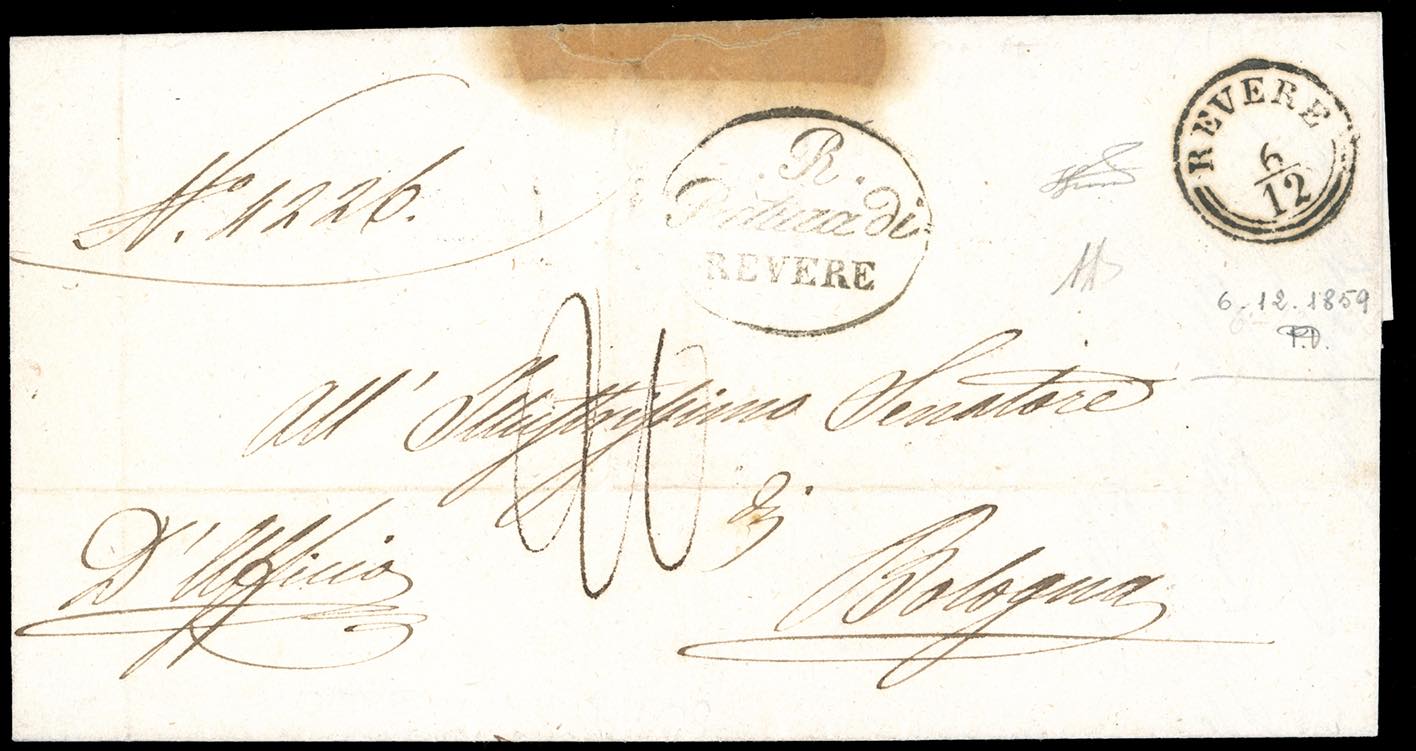 N.º 4226.
R.
Pretura di
REVERE
REVERE
6
12
6.12.1859
P.D.
All' Illustrissimo Senatore
di
D'Ufficio
Bologna